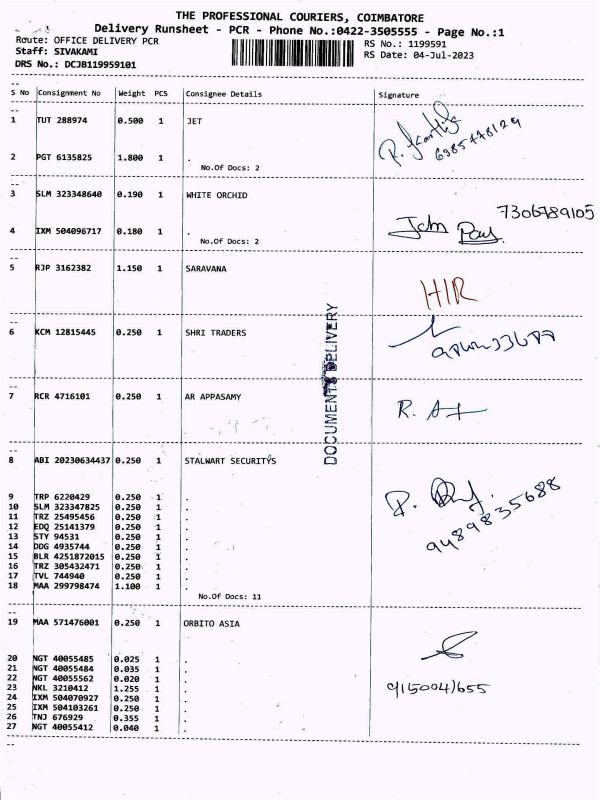 THE PROFESSIONAL COURIERS, COIMBATORE
Delivery Runsheet - PCR - Phone No.:0422-3505555 - Page No.:1
Route: OFFICE DELIVERY PCR RS No.: 1199591
Staff: SIVAKAMI RS Date: 04-Jul-2023
DRS No.: DCJB119959101
S No Consignment No Weight PCS Consignee Details Signature
1 TUT 288974 0.500 1 JET
6385778129
2 PGT 6135825 1.800 1 .
No.Of Docs: 2
3 SLM 323348640 0.190 1 WHITE ORCHID
7306789105
4 IXM 504096717 0.180 1 .
No.Of Docs: 2
John
5 RJP 3162382 1.150 1 SARAVANA
HIR
6 KCM 12815445 0.250 1 SHRI TRADERS
DOCUMENTS DELIVERY
7 RCR 4716101 0.250 1 AR APPASAMY
8 ABI 20230634437 0.250 1 STALWART SECURITYS
9489835688
9 TRP 6220429 0.250 1 .
10 SLM 323347825 0.250 1 .
11 TRZ 25495456 0.250 1 .
12 EDQ 25141379 0.250 1 .
13 STY 94531 0.250 1 .
14 DDG 4935744 0.250 1 .
15 BLR 4251872015 0.250 1 .
16 TRZ 305432471 0.250 1 .
17 TVL 744940 0.250 1 .
18 MAA 299798474 1.100 1 .
No.Of Docs: 11
19 MAA 571476001 0.250 1 ORBITO ASIA
20 NGT 40055485 0.025 1 .
21 NGT 40055484 0.035 1 .
22 NGT 40055562 0.020 1 .
23 NKL 3210412 1.255 1 .
9150041655
24 IXM 504070927 0.250 1 .
25 IXM 504103261 0.250 1 .
26 TNJ 676929 0.355 1 .
27 NGT 40055412 0.040 1 .